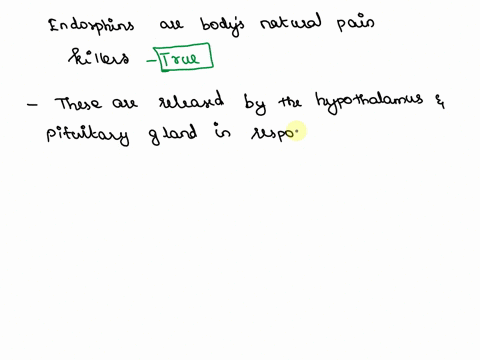 Endorphins are body's natural pain
killers - True
- These are released by the hypothalamus &
pituitary gland in respo